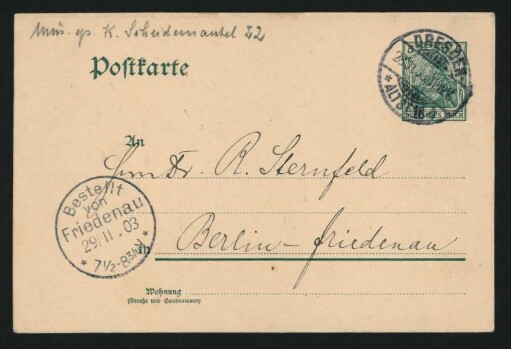 Mus. ep. K. Scheidemantel 22
Postkarte
DRESDEN
ALTST.
An
Herrn Dr. R. Sternfeld
Bestellt
von
Friedenau
29/11.03
* 7½-8¾N. *
in Berlin-Friedenau
Wohnung
(Straße und Hausnummer)